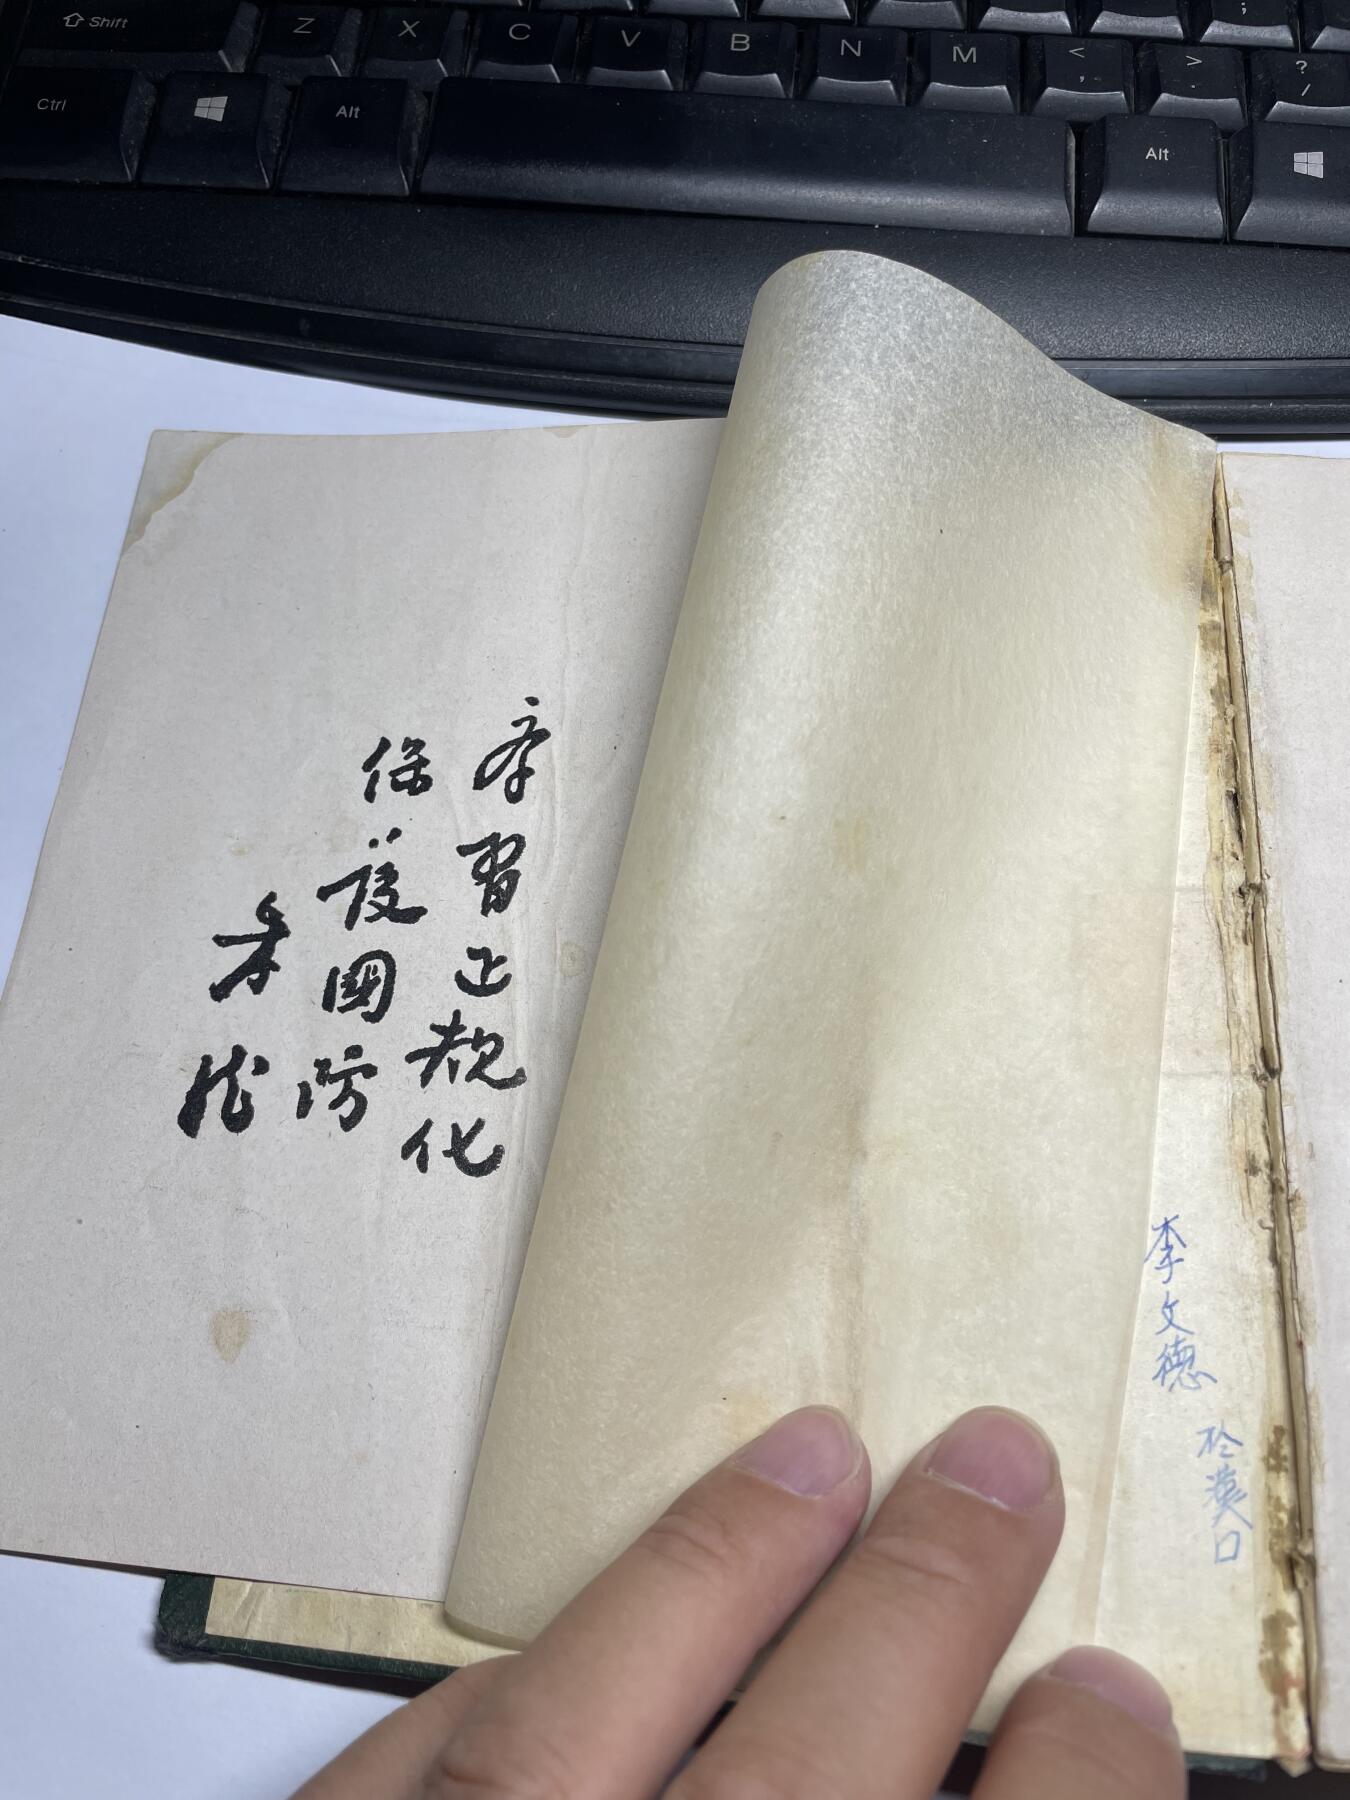 Shift Z X C V B N M < , > . ? /
;
Ctrl Alt Alt
学習正規化
保護國防
李文德
於漢口